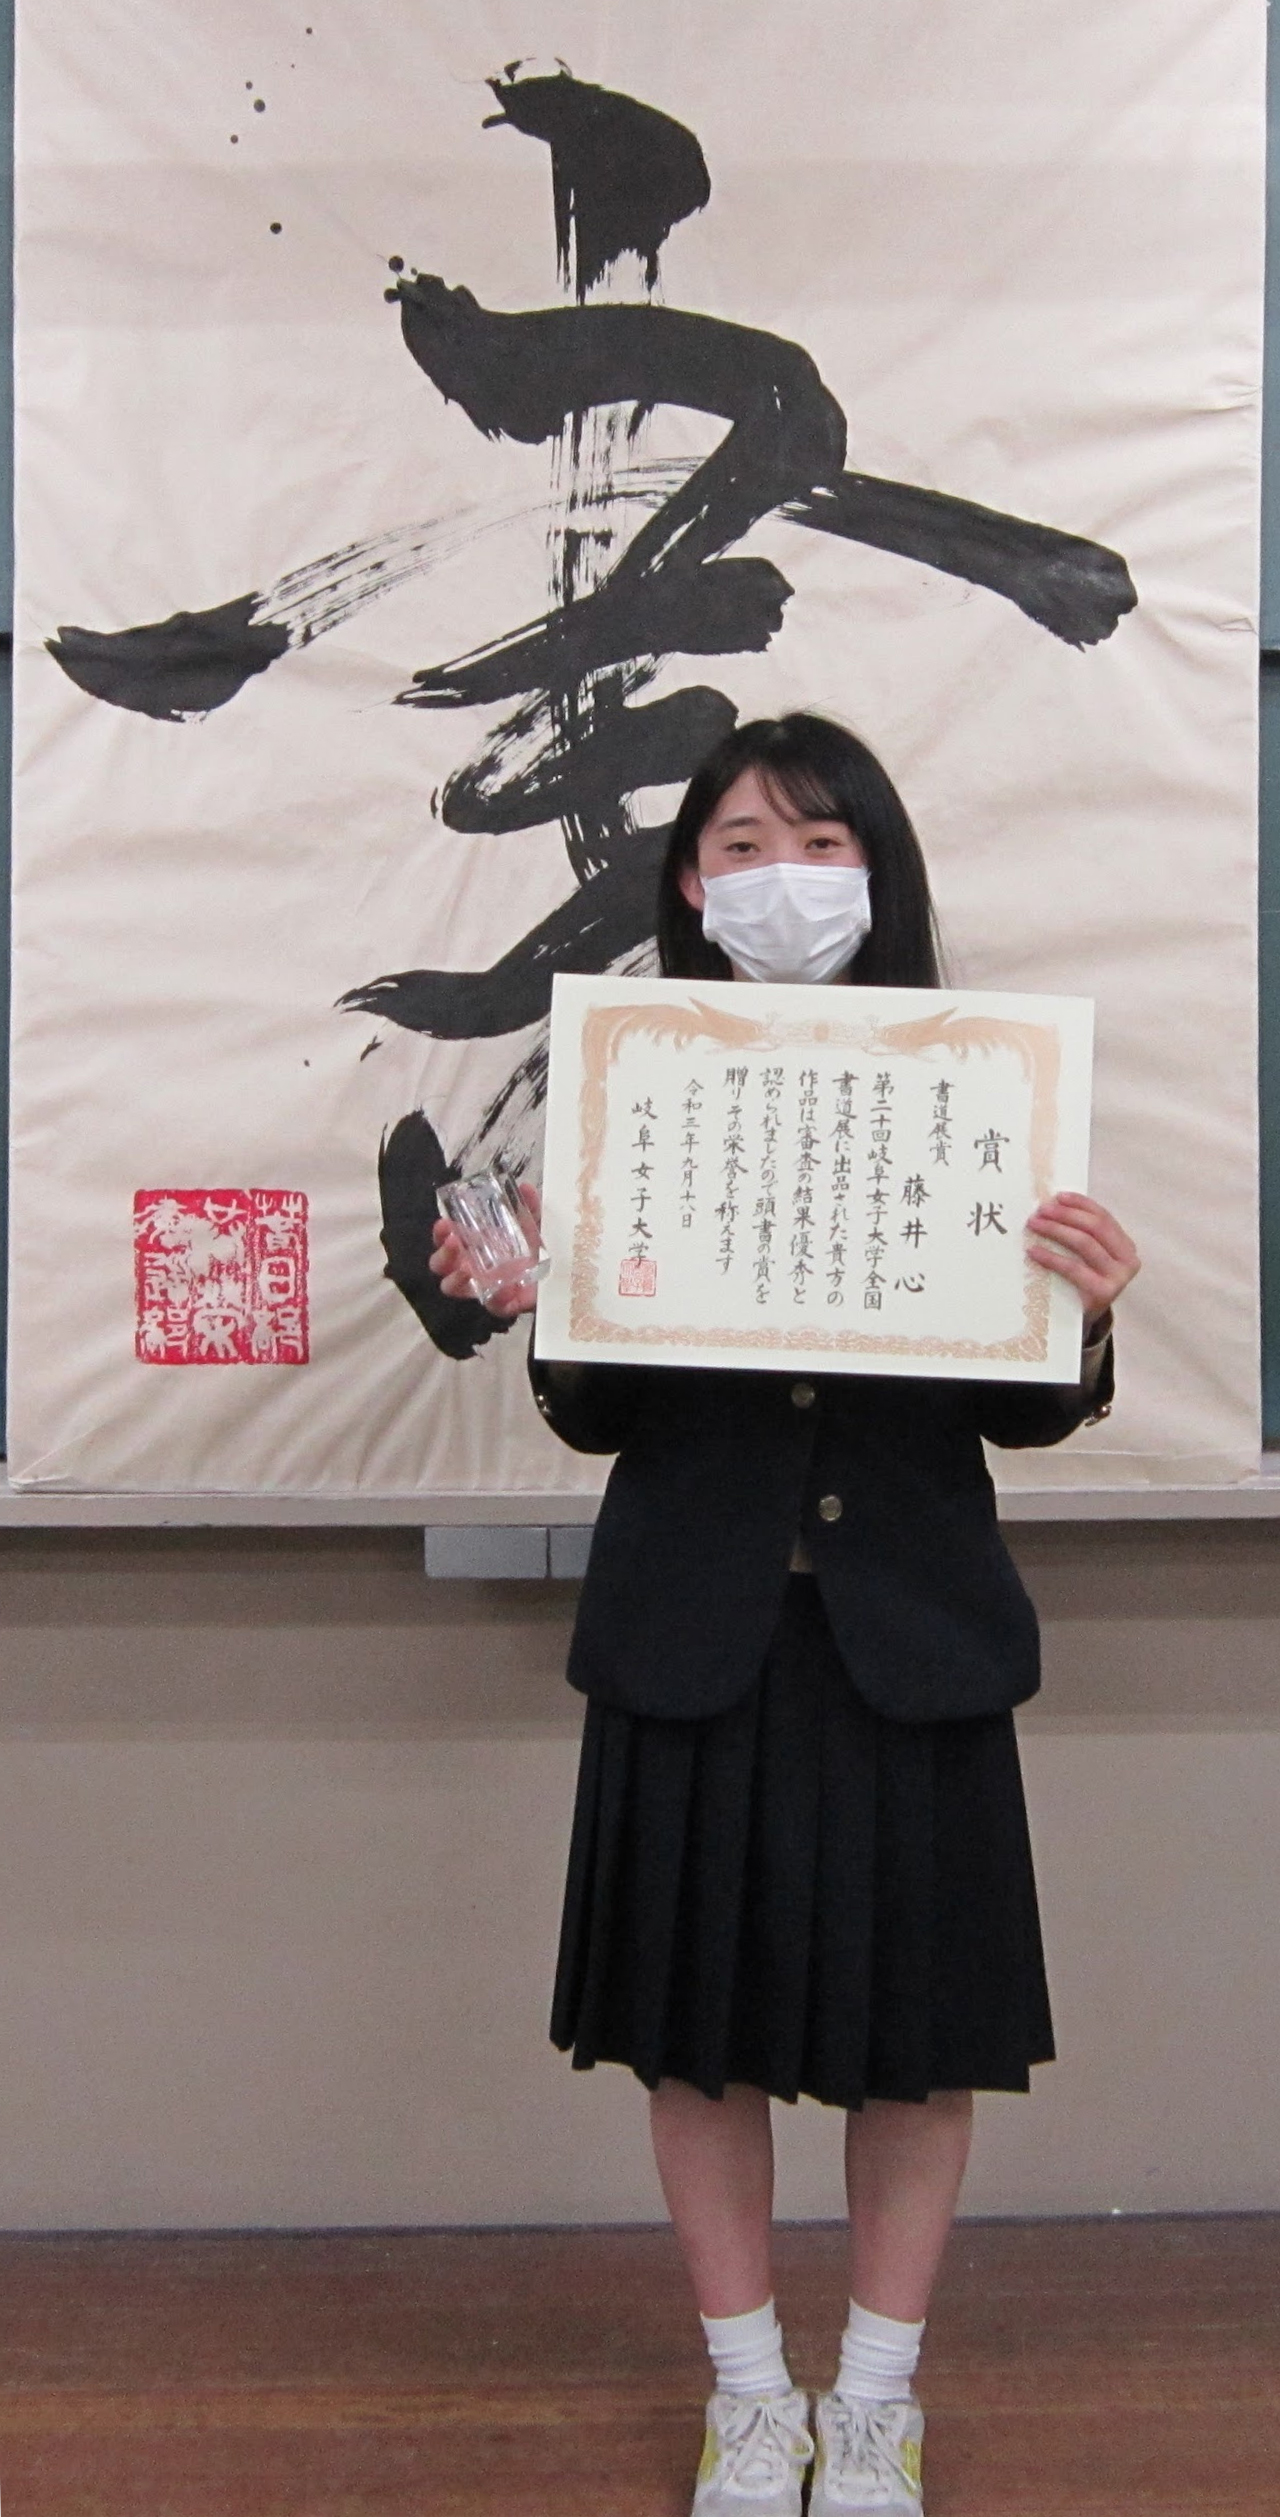 賞状
書道展賞
藤井心
第二十回岐阜女子大学全国
書道展に出品された貴方の
作品は審査の結果優秀と
認められましたので頭書の賞を
贈りその栄誉を称えます
令和三年九月十八日
岐阜女子大学